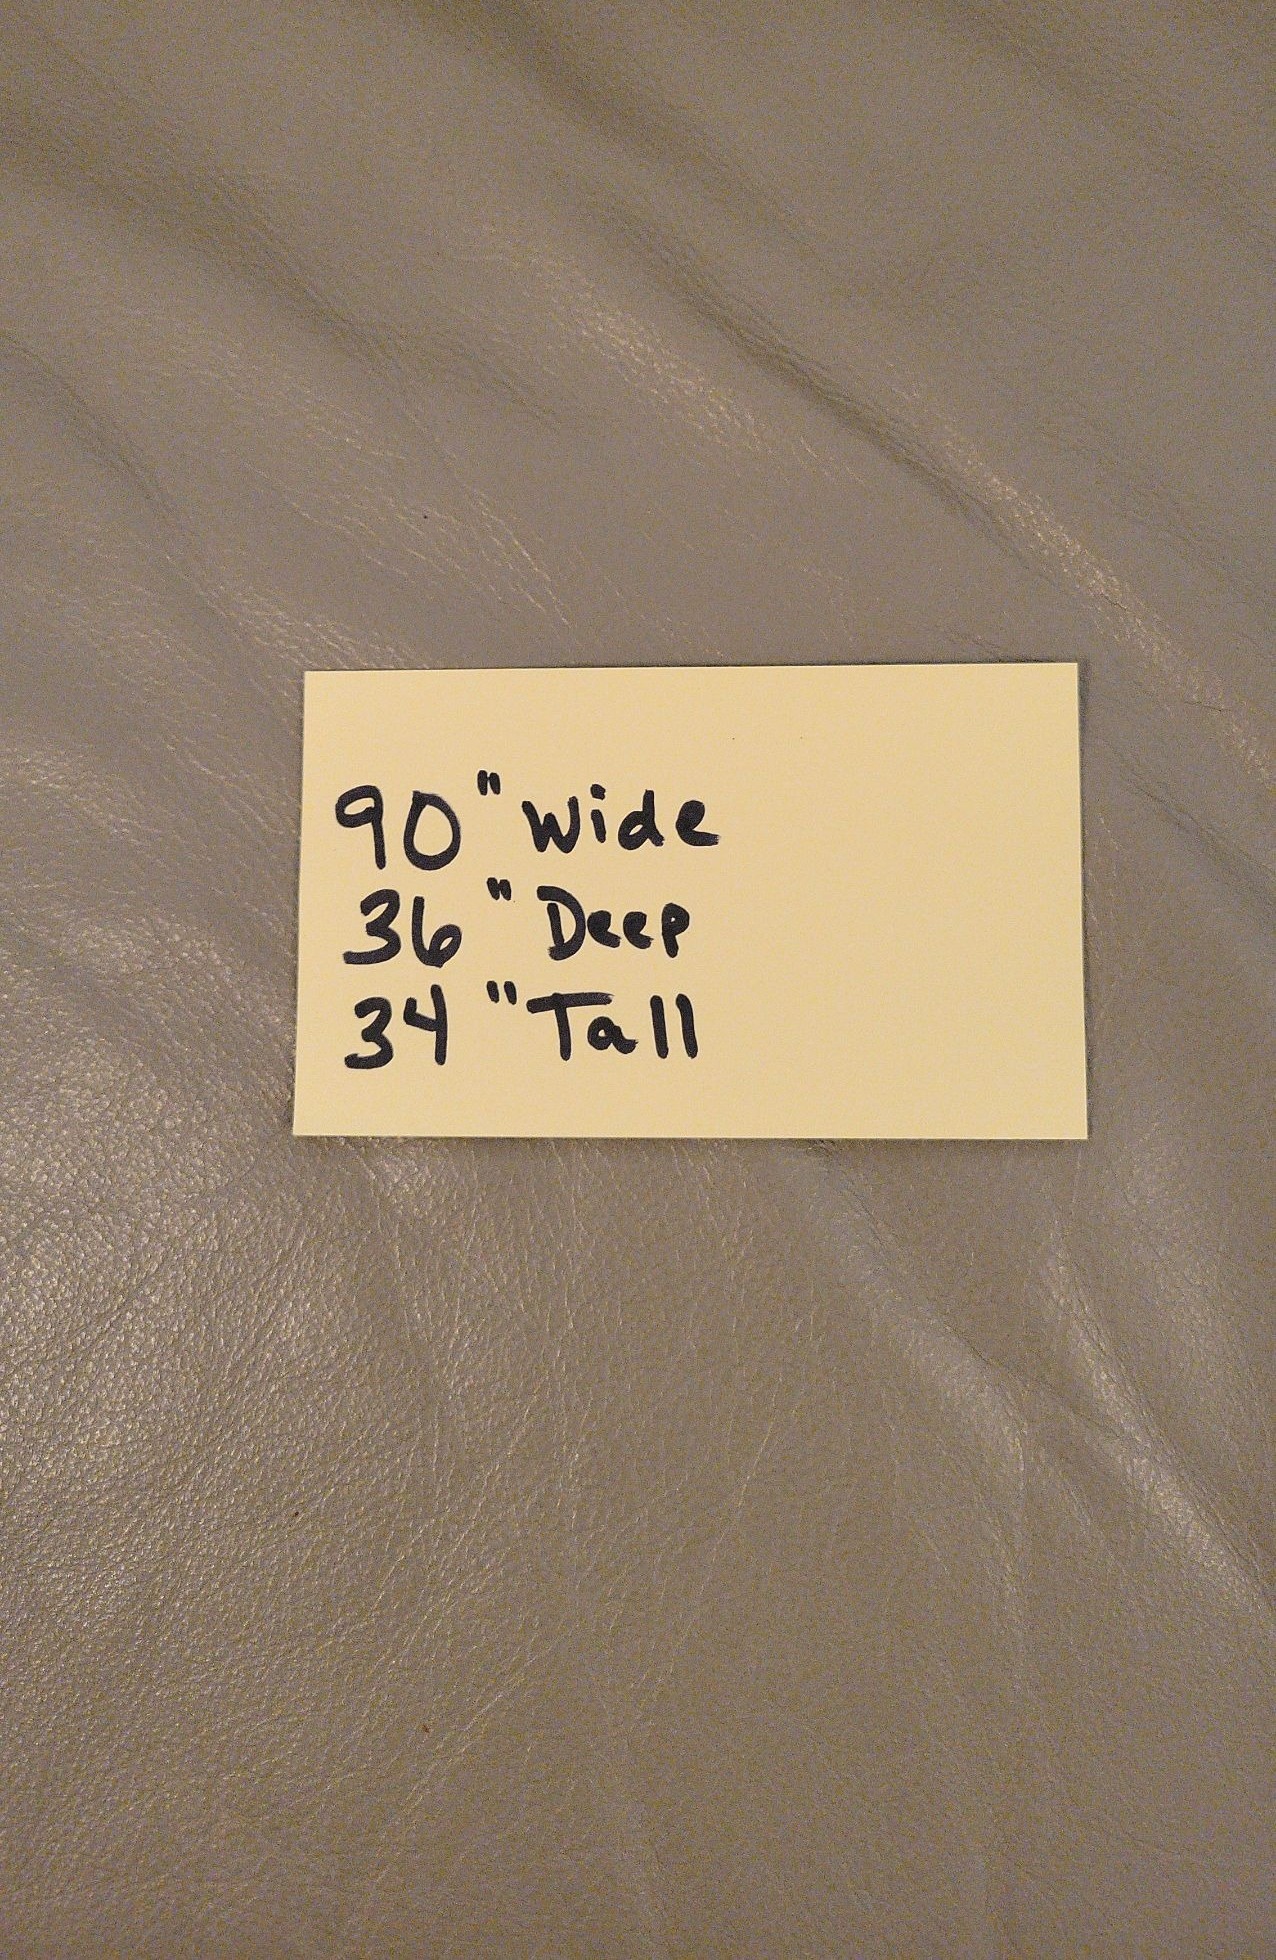 90" Wide
36" Deep
34" Tall